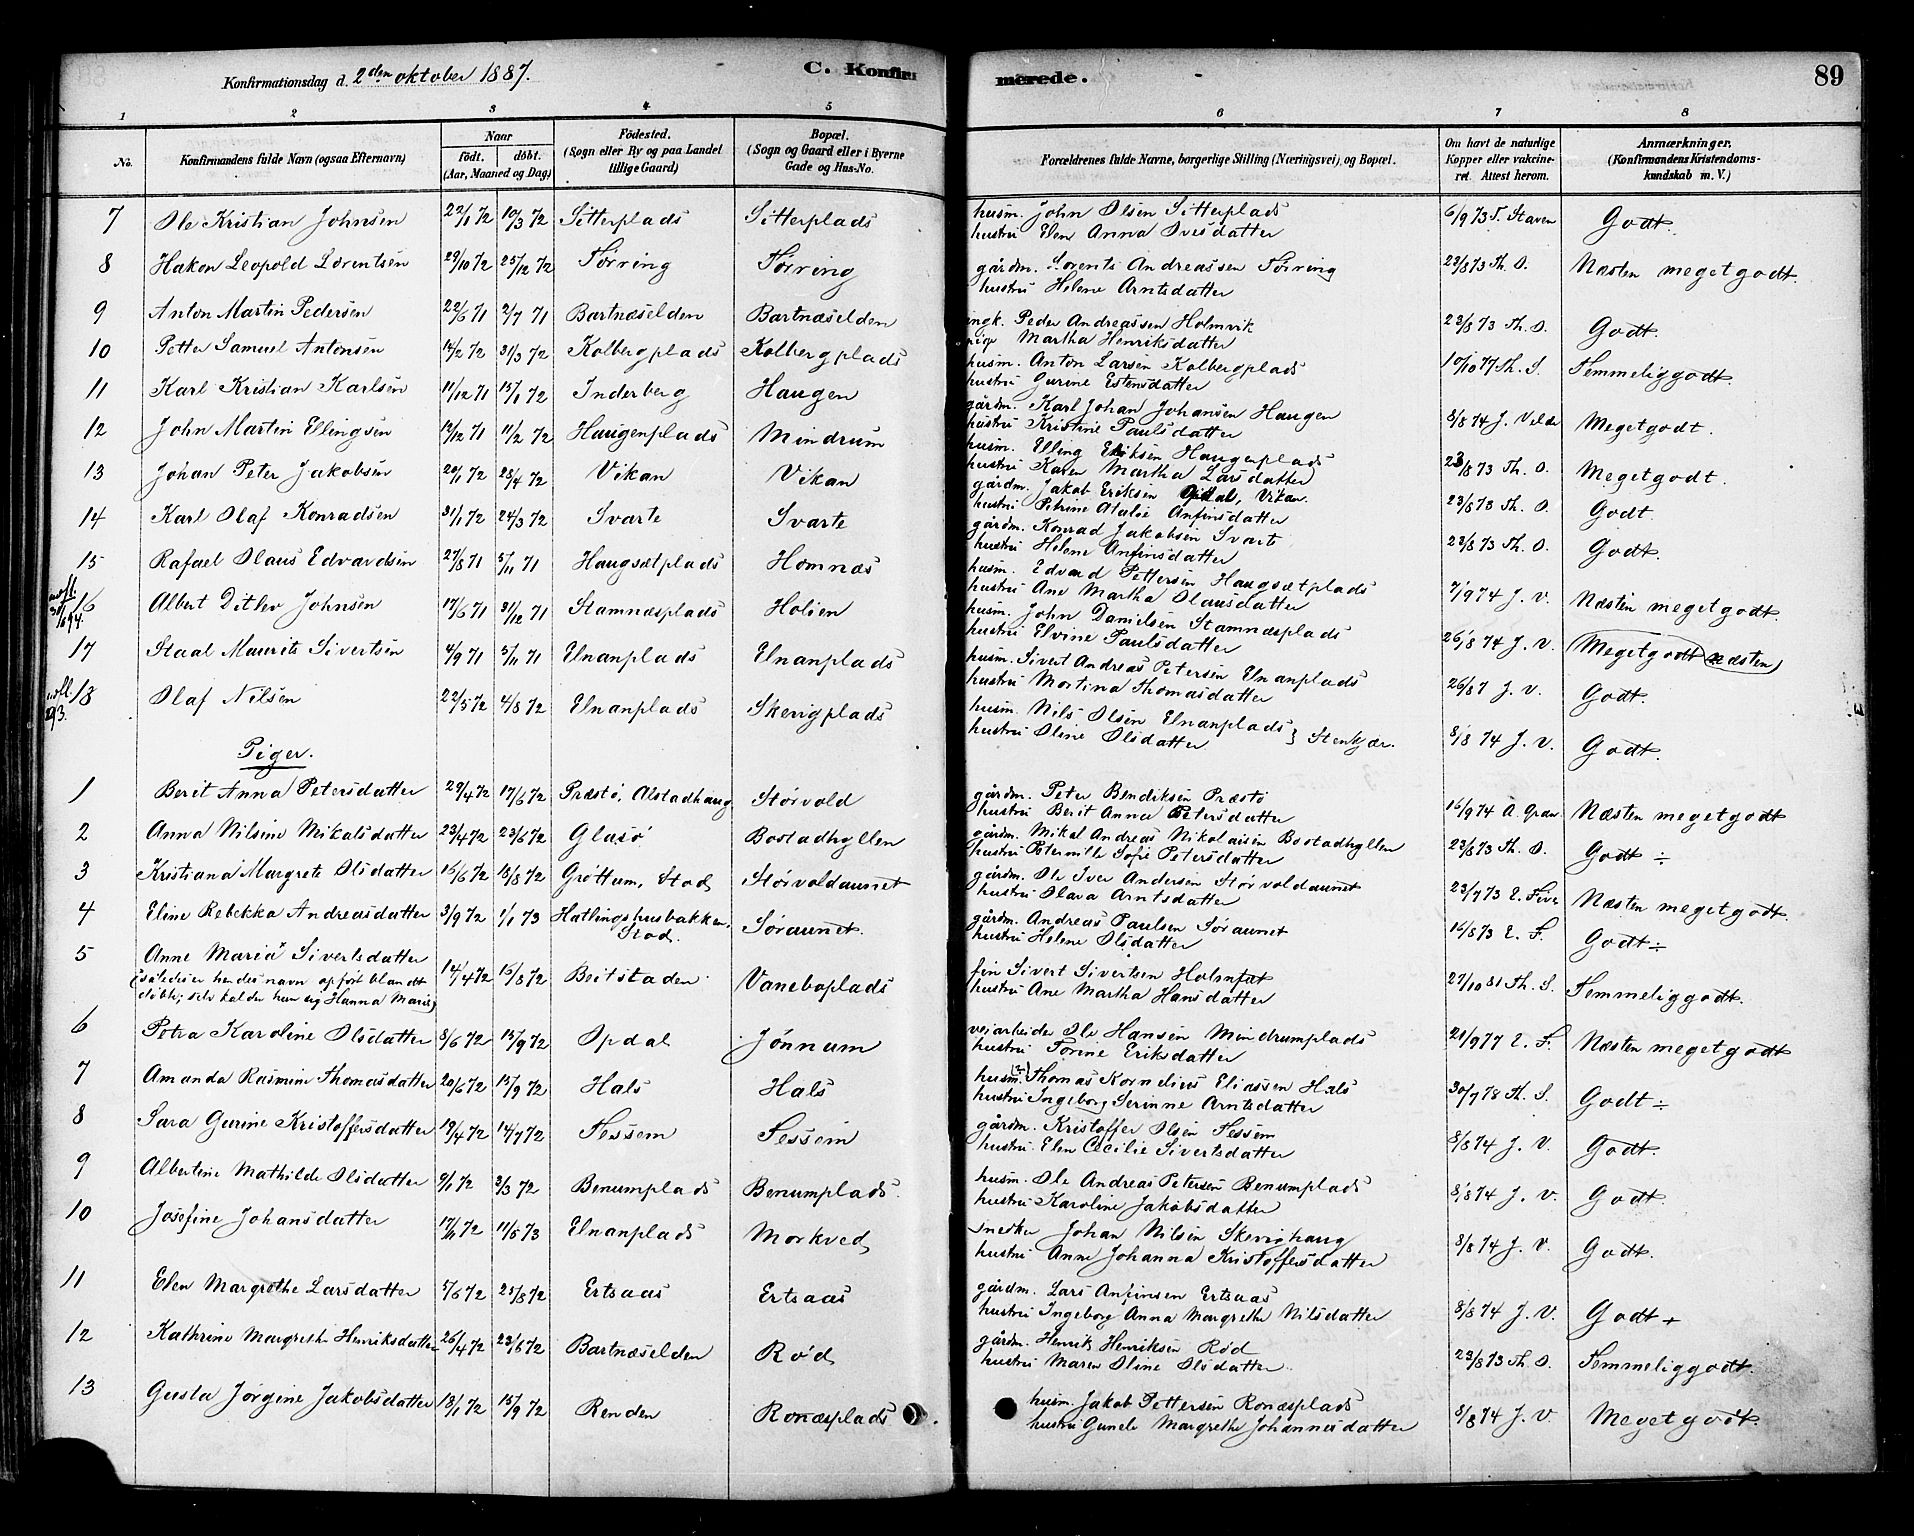 Konfirmationsdag d. 2den oktober 1887.
C. Konfirmerede.
89
1 2 3 4 5 6 7 8
No.
Konfirmandens fulde Navn (ogsaa Efternavn)
Naar
födt. döbt.
(Aar, Maaned og Dag)
Födested.
(Sogn eller By og paa Landet
tillige Gaard)
Bopæl.
(Sogn og Gaard eller i Byerne
Gade og Hus-No.
Forældrenes fulde Navne, borgerlige Stilling (Næringsvei), og Bopæl.
Om havt de naturlige
Kopper eller vakcine-
ret. Attest herom.
Anmærkninger.
(Konfirmandens Kristendoms-
kundskab m. V.)
7 Ole Kristian Johnsen 22/1 72 10/3 72 Sitterplads Sitterplads husm. John Olsen Sitterplads 6/9 73 T. Staven Godt.
hustru Elen Anna Ovesdatter
8 Hakon Leopold Lorentsen 29/10 72 25/12 72 Tørring Tørring gårdm. Lorents Andreassen Tørring 23/8 73 Th. O. Næsten megetgodt.
hustru Helene Arntsdatter
9 Anton Martin Pedersen 22/6 71 2/7 71 Bartnæselden Bartnæselden ungk. Peder Andreassen Holmvik 23/8 73 Th. O. Godt.
pige Martha Henriksdatter
10 Petter Samuel Antonsen 14/2 72 31/3 72 Kolbergplads Kolbergplads husm. Anton Larsen Kolbergplads 10/10 77 Th. S. Temmeliggodt.
hustru Gurine Estensdatter
11 Karl Kristian Karlsen 11/12 71 15/1 72 Inderberg Haugen gårdm. Karl Johan Johansen Haugen 8/8 74 J. Velde Megetgodt.
hustru Kristine Paulsdatter
12 John Martin Ellingsen 12/12 71 11/2 72 Haugenplads Mindrum husm. Elling Eriksen Haugenplads 23/8 73 Th. O. Megetgodt.
hustru Karen Martha Larsdatter
13 Johan Peter Jakobsen 20/1 72 28/4 72 Vikan Vikan gårdm. Jakob Eriksen Opdal, Vikan. 23/8 73 Th. O. Godt
hustru Petrine Atalie Anfinsdatter
14 Karl Olaf Konradsen 31/1 72 24/3 72 Svarte Svarte gårdm. Konrad Jakobsen Svarte 23/8 73 Th. O. Godt.
hustru Helene Anfinsdatter
15 Rafael Olaus Edvardsen 27/8 71 5/11 71 Haugsætplads Homnæs husm. Edvard Pettersen Haugsætplads 7/9 74 J. V. Næsten megetgodt.
hustru Ane Martha Olausdatter
16 Albert Ditlev Johnsen 17/6 71 31/12 71 Stamnæsplads Holien husm. John Danielsen Stamnæsplads 26/8 74 J. V. Megetgodt (næsten)
hustru Elvine Paulsdatter
17 Staal Maurits Sivertsen 4/9 71 5/11 71 Elnanplads Elnanplads husm. Sivert Andreas Petersen Elnanplads 26/8 7 J. V. Godt.
hustru Martina Thomasdatter
18 Olaf Nilsen 22/5 72 4/8 72 Elnanplads Skevigplads husm. Nils Olsen Elnanplads } Stenkjær. 8/8 74 J. V. Godt.
hustru Oline Olsdatter
Piger.
1 Berit Anna Petersdatter 29/4 72 17/6 72 Præstö, Alstadhaug Störvold gårdm. Peter Bendiksen Præstö 16/9 74 A. Gran Næsten megetgodt
hustru Berit Anna Petersdatter
2 Anna Nilsine Mikalsdatter 23/4 72 23/6 72 Glasö Bostadhyllen gårdm. Mikal Andreas Nikolaisen Bostadhyllen 23/8 73 Th. O. Godt ÷
hustru Peternille Sofie Petersdatter
3 Kristiana Margrete Olsdatter 15/6 72 18/8 72 Gröttum, Stod Störvoldaunet gårdm. Ole Iver Andersen Störvoldaunet 23/7 73 E. Five Næsten megetgodt.
hustru Olava Arntsdatter
4 Eline Rebekka Andreasdatter 3/9 72 1/1 73 Hatlingshusbakken, Söraunet. gårdm. Andreas Paulsen Söraunet 16/8 73 E. F. Godt ÷
Stod. hustru Helene Olsdatter
5 Anne Maria Sivertsdatter 14/4 72 15/8 72 Beitstaden Vaneboplads fin Sivert Sivertsen Holmfæt 27/10 81 Th. S. Temmeliggodt.
(således er hendes navn opført blandt hustru Ane Martha Hansdatter
døbte; selv kalder hun sig Hanna Marie)
6 Petra Karoline Olsdatter 8/6 72 15/9 72 Opdal Jönnum veiarbeider Ole Hansen Mindrumplads 21/9 77 E. F. Næsten megetgodt
hustru Torine Eriksdatter
7 Amanda Rasmine Thomasdatter 20/6 72 15/9 72 Hals Hals husm.(?) Thomas Kornelius Eliassen Hals 30/7 78 Th. S. Godt ÷
hustru Ingeborg Serinne Arntsdatter
8 Sara Gurine Kristoffersdatter 19/4 72 14/7 72 Tessem Tessem gårdm. Kristoffer Olsen Tessem 8/8 74 J. V. Godt.
hustru Elen Cecilie Sivertsdatter
9 Albertine Mathilde Olsdatter 9/1 72 3/3 72 Benumplads Benumplads. husm. Ole Andreas Petersen Benumplads 8/8 74 J. V. Godt
hustru Karoline Jakobsdatter
10 Josefine Johansdatter 17/11 72 11/5 73 Elnanplads Morkved snedker Johan Nilsen Skevighaug 8/8 74 J. V. Godt.
hustru Anne Johanna Kristoffersdatter
11 Elen Margrethe Larsdatter 5/6 72 25/8 72 Ertsaas Ertsaas gårdm. Lars Anfinsen Ertsaas 8/8 74 J. V. Godt +
hustru Ingeborg Anna Margrethe Nilsdatter
12 Kathrine Margrethe Henriksdatter 26/4 72 23/6 72 Bartnæselden Röd gårdm. Henrik Henriksen Röd 23/8 73 Th. O. Temmeliggodt.
hustru Maren Oline Olsdatter
13 Gusta Jörgine Jakobsdatter 13/1 72 15/9 72 Renden Ronæsplads husm. Jakob Pettersen Ronæsplads 8/8 74 J. V. Megetgodt.
hustru Gunele Margrethe Johannesdatter